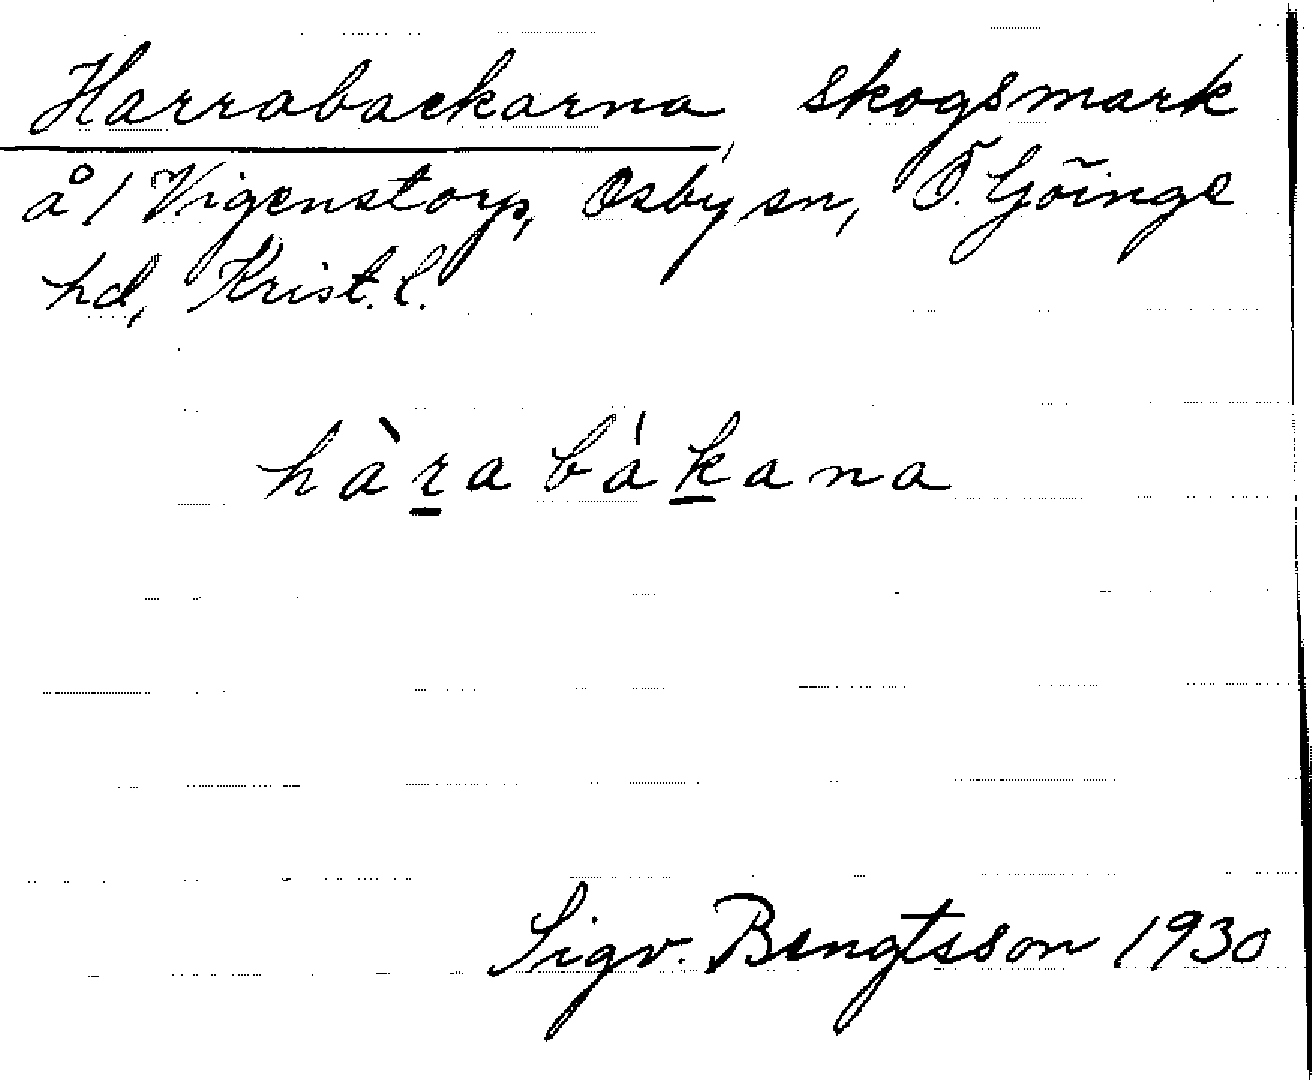 Harrabackarna, skogsmark
å 1 Vigenstorp, Osby sn, Ö. Göinge
hd, Krist. l.
hàrabákana
Sigv. Bengtsson 1930